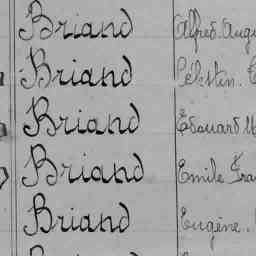 Briand Alfred
Briand Célestin.
Briand Edouard
Briand Emile
Briand Eugène.